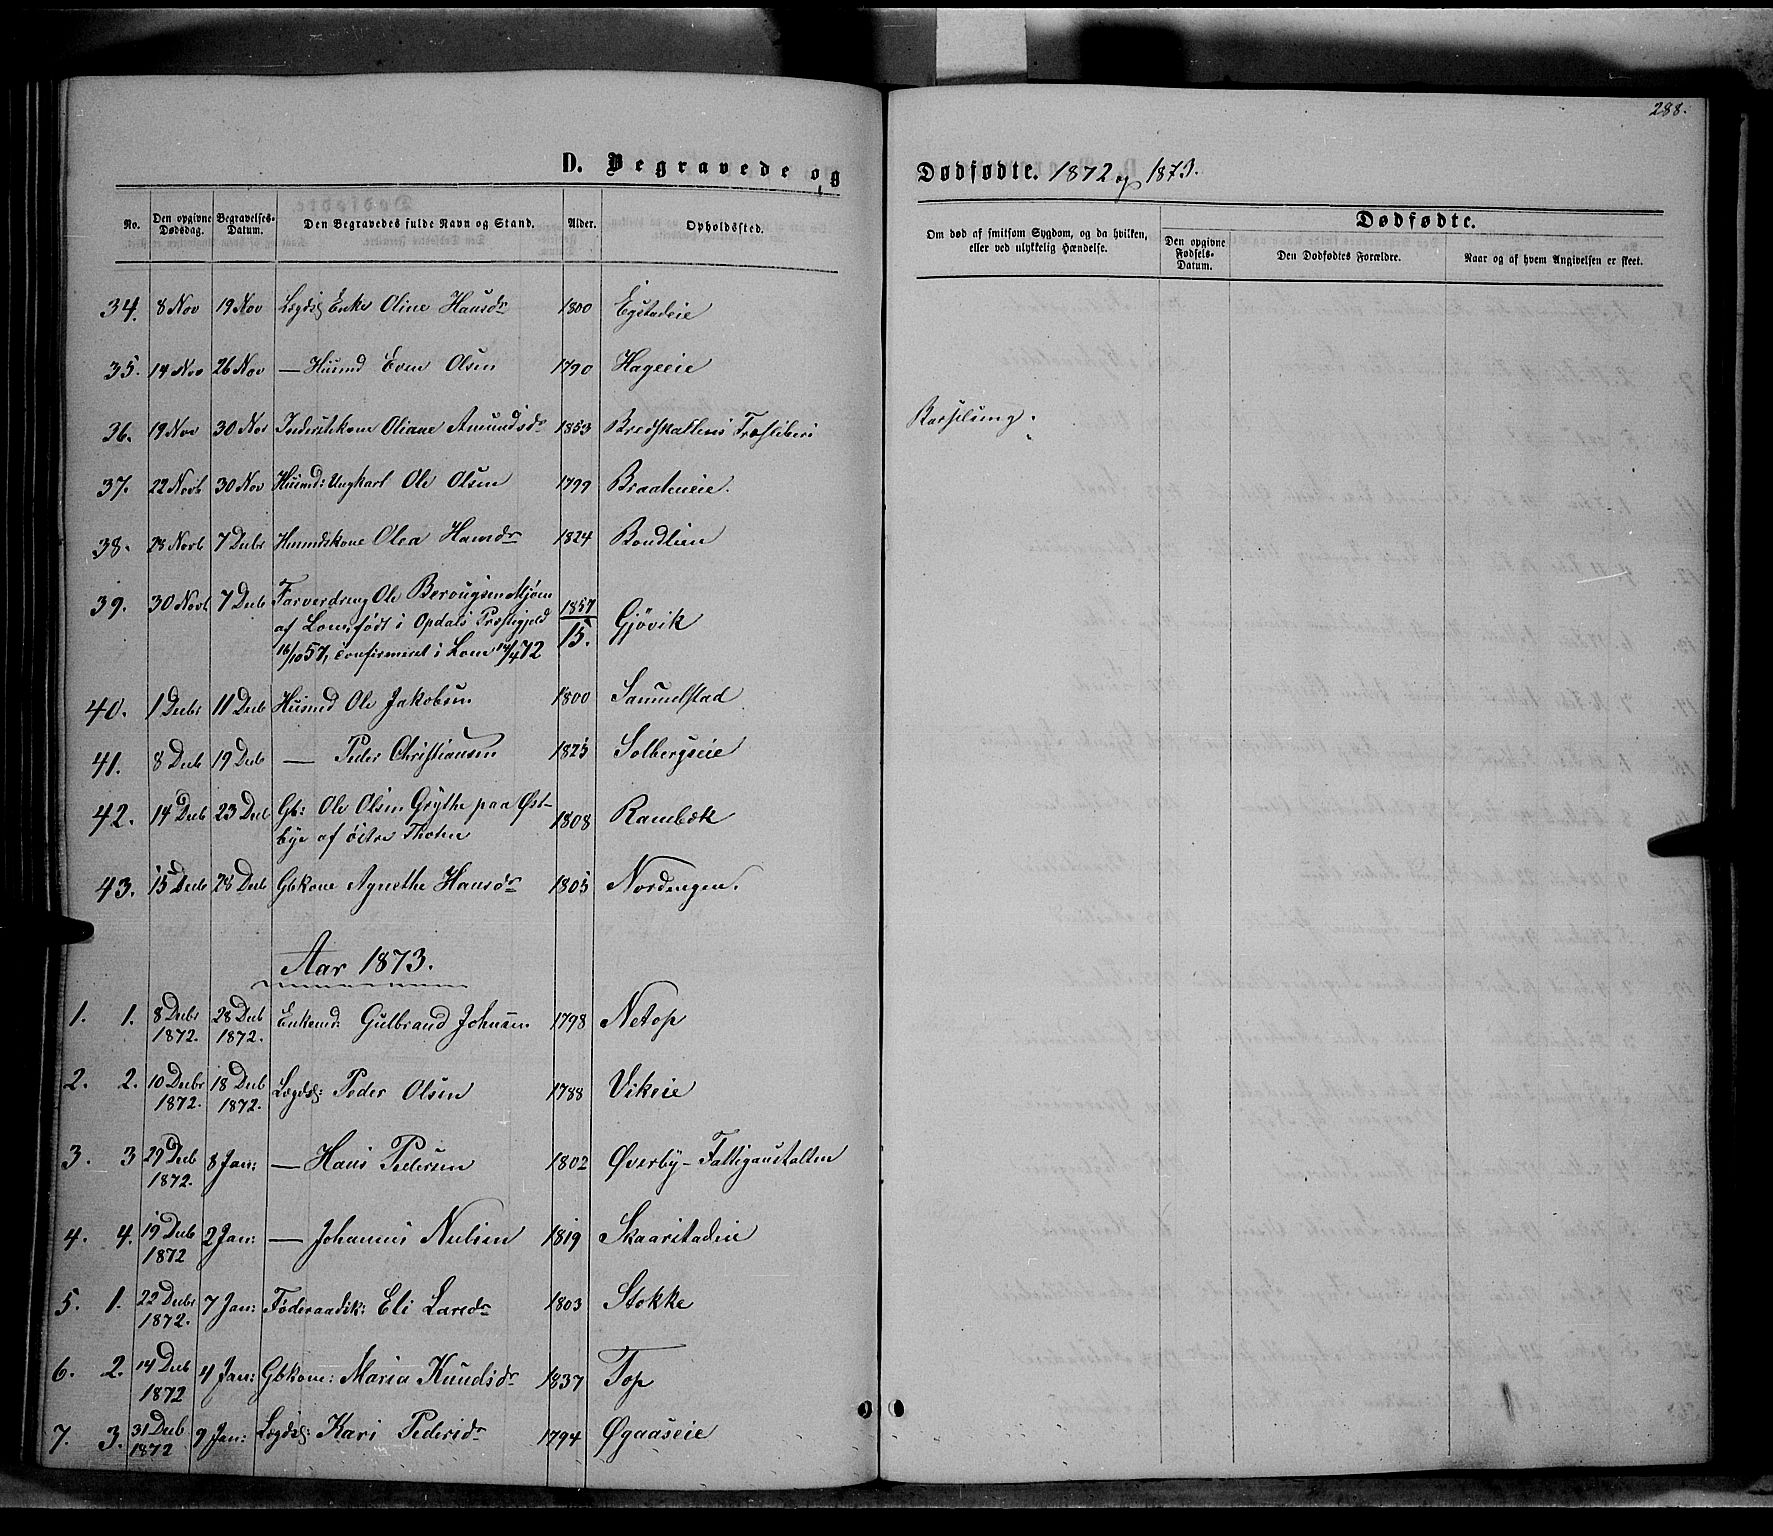 288.
D. Begravede og
Dødfødte. 1872 og 1873.
No.
Den opgivne Dødsdag.
Begravelses-Datum.
Den Begravedes fulde Navn og Stand.
Alder.
Opholdssted.
Om død af smitsom Sygdom, og da hvilken,
eller ved ulykkelig Hændelse.
Dødfødte.
Den opgivne Fødsels-Datum.
Den Dødfødtes Forældre.
Naar og af hvem Angivelsen er skeet.
34. 8 Nov 19 Nov Lægdsl Enke Oline Hansdr 1800 Egstadeie
35. 14 Nov 26 Nov — Husmd Even Olsen 1790 Hageeie
36. 19 Nov 30 Nov Inderstkone Oliane Amundsdr 1853 Bredskallens Træstiberi Barselseng.
37. 22 Novb 30 Nov Husmd: Ungkarl Ole Olsen 1799 Braateneie.
38. 28 Novb 7 Decbr Husmdskone Olea Hansdr 1824 Bondlien
39. 30 Novb 7 Decb Farverdreng Ole Berougsen Mjøen
af Lom, født i Opdals Præstegjeld
16/10 57, confirmeret i Lom 14/4 72
1857
15.
Gjøvik
40. 1 Decbr 11 Decb Husmd Ole Jakobsen 1800 Samuelstad
41. 8 Decb 19 Decb — Peder Christiansen 1825 Solbergseie
42. 14 Decb 23 Decb Gb: Ole Olsen Grythe paa Øst-
bye af østre Thoten 1808 Rambæk
43. 15 Decb 28 Decb Gbkone Agnethe Hansdr 1805 Nordengen.
Aar 1873.
1. 1. 8 Decbr 1872. 28 Decb 1872. Enkemd: Gulbrand Johnsen 1798 Netop
2. 2. 10 Decbr 1872. 18 Decb 1872. Lægdsl: Peder Olsen 1788 Vikeie
3. 3 29 Decb 1872. 8 Jan: — Hans Pedersen 1802 Øverby-Fattiganstalten
4. 4. 19 Decb 1872 2 Jan: — Johannes Nielsen 1819 Skaarstadeie
5. 1. 22 Decbr 1872. 7 Jan: Føderaadsk: Eli Larsdr 1803 Stokke
6. 2. 14 Decb 1872 4 Jan: Gbkone: Maria Knudsdr 1837 Top
7. 3. 31 Decb 1872 9 Jan: Lægdsl: Kari Pedersdr 1794 Øgaaseie